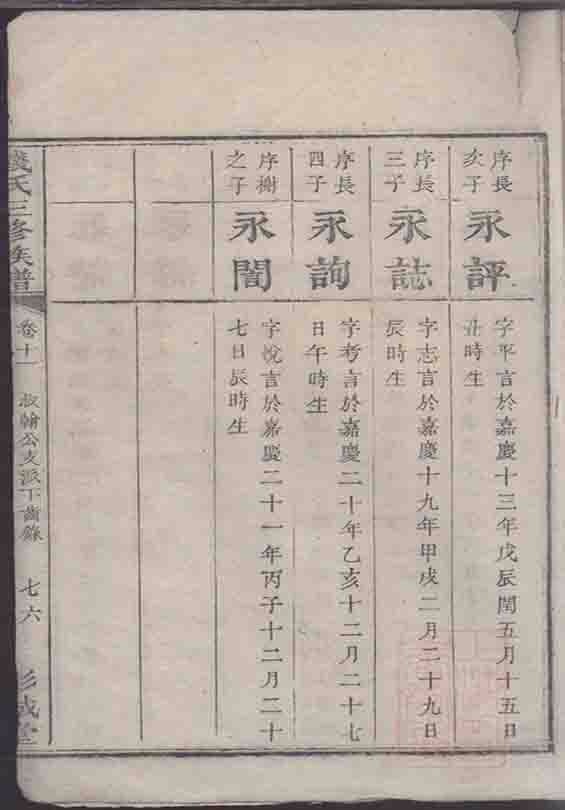 序長
次子
永評
字平言於嘉慶十三年戊辰閏五月十五日
丑時生
序長
三子
永誌
字志言於嘉慶十九年甲戌二月二十九日
辰時生
序長
四子
永詢
字考言於嘉慶二十年乙亥十二月二十七
日午時生
序樹
之子
永誾
字悅言於嘉慶二十一年丙子十二月二十
七日辰時生
氏三修族譜
卷十一
翰公支派下齒錄
七六
彭城堂